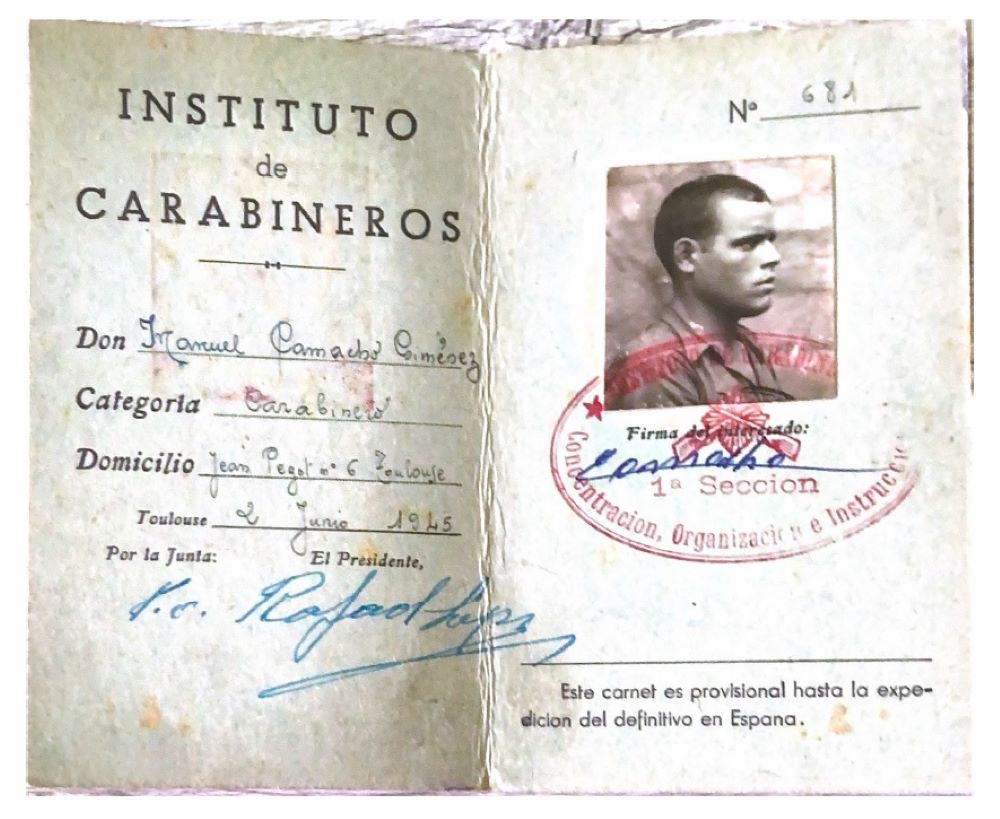 INSTITUTO
de
CARABINEROS
Don Manuel Camacho Gimenez
Categoria Carabinero
Domicilio Jean Pegot nº 6 Toulouse
Toulouse 2 Junio 1945
Por la Junta: El Presidente,
Rafael
Nº 681
Firma del interesado:
Camacho
1ª Seccion
Concentracion, Organizacion e Instruccion
Este carnet es provisional hasta la expe-
dicion del definitivo en Espana.